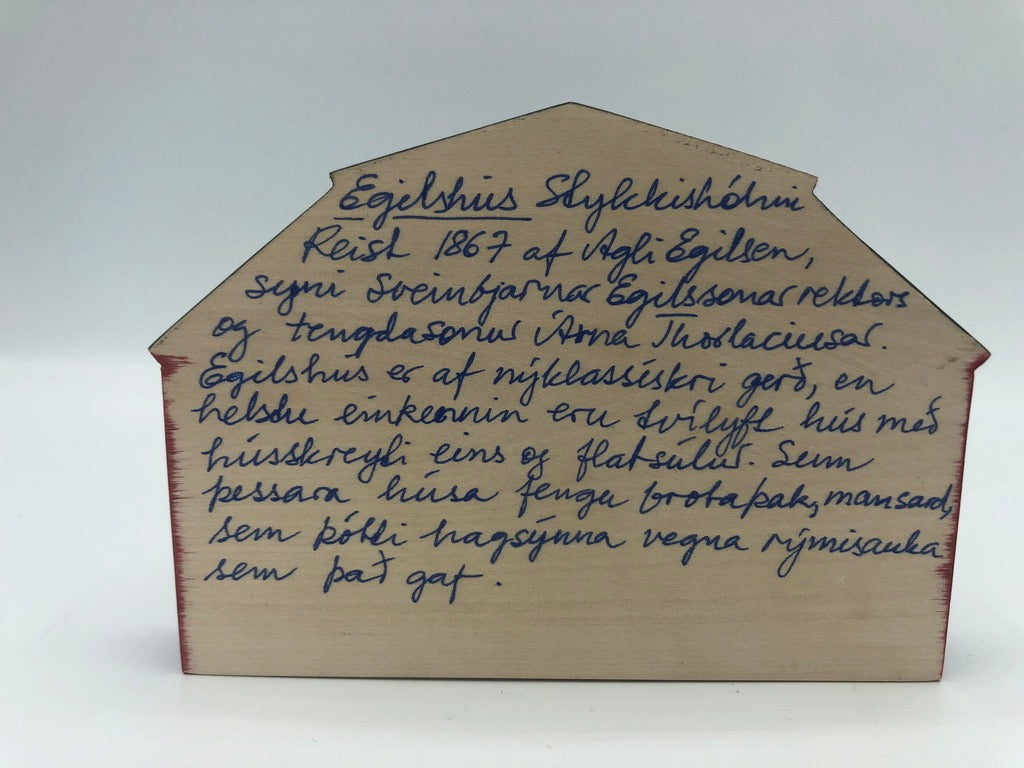 Egilshús Stykkishólmi
Reist 1867 af Agli Egilsen,
syni Sveinbjarnar Egilssonar rektors
og tengdasonur Árna Thorlaciusar.
Egilshús er af nýklassískri gerð, en
helstu einkennin eru tvílyft hús með
hússkreyti eins og flatsúlur. Sum
þessara húsa fengu brotaþak, mansard,
sem þótti hagsýnna vegna rýmisauka
sem það gaf.